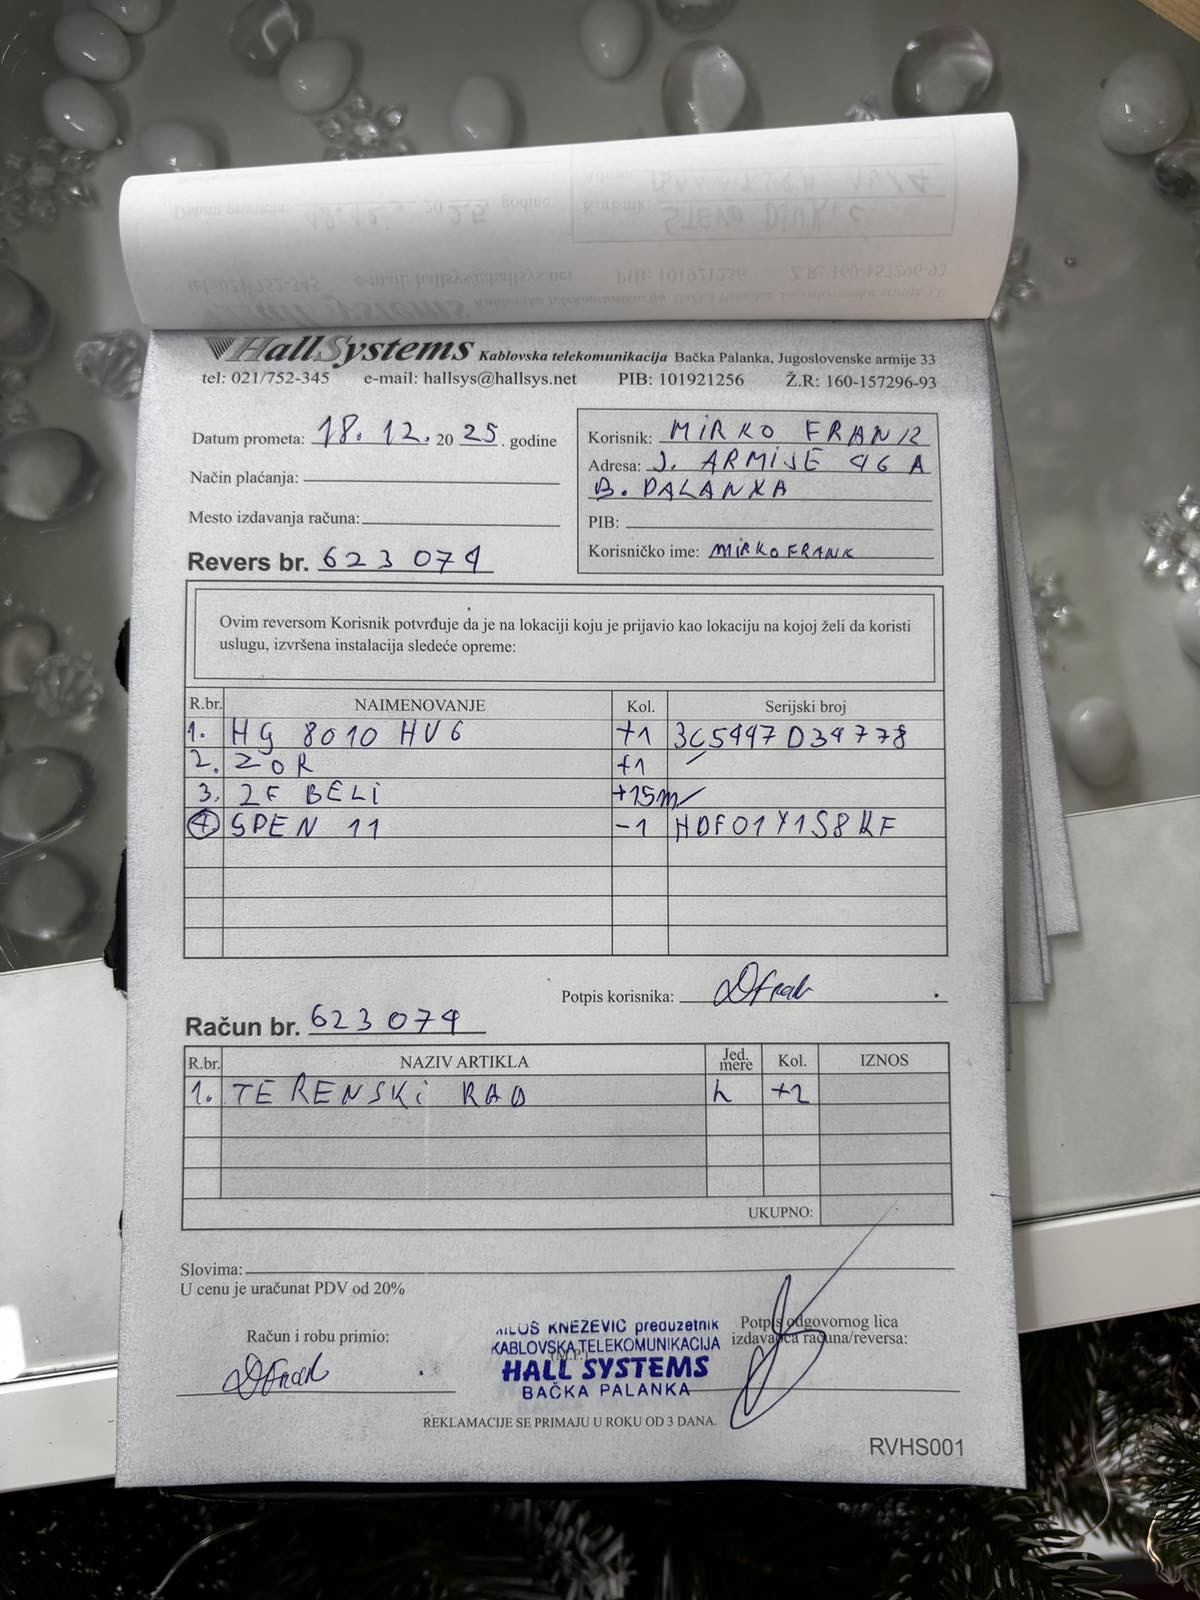 HallSystems Kablovska telekomunikacija Bačka Palanka, Jugoslovenske armije 33
tel: 021/752-345 e-mail: hallsys@hallsys.net PIB: 101921256 Ž.R: 160-157296-93
Datum prometa: 18.12.2025. godine
Način plaćanja:
Mesto izdavanja računa:
Revers br. 623074
Korisnik: MIRKO FRANK
Adresa: J. ARMIJE 96 A
B. PALANKA
PIB:
Korisničko ime: MIRKOFRANK
Ovim reversom Korisnik potvrđuje da je na lokaciji koju je prijavio kao lokaciju na kojoj želi da koristi
uslugu, izvršena instalacija sledeće opreme:
R.br. NAIMENOVANJE Kol. Serijski broj
1. HG 8010 HV6 +1 3C5447D34778
2. ZOR +1
3. 2F BELI +15m
4 SPEN 11 -1 HDF01Y1S8KF
Potpis korisnika:
Račun br. 623074
R.br. NAZIV ARTIKLA Jed. mere Kol. IZNOS
1. TERENSKI RAD h +2
UKUPNO:
Slovima:
U cenu je uračunat PDV od 20%
Račun i robu primio:
MILOŠ KNEŽEVIĆ preduzetnik
KABLOVSKA TELEKOMUNIKACIJA
(M.P.)
HALL SYSTEMS
BAČKA PALANKA
Potpis odgovornog lica
izdavaoca računa/reversa:
REKLAMACIJE SE PRIMAJU U ROKU OD 3 DANA.
RVHS001